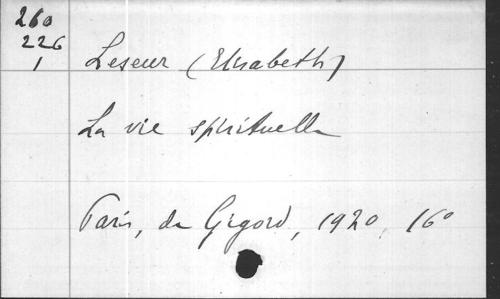 260
226
1
Leseur (Elisabeth)
La vie spirituelle
Paris, de Gigord, 1920, 16°